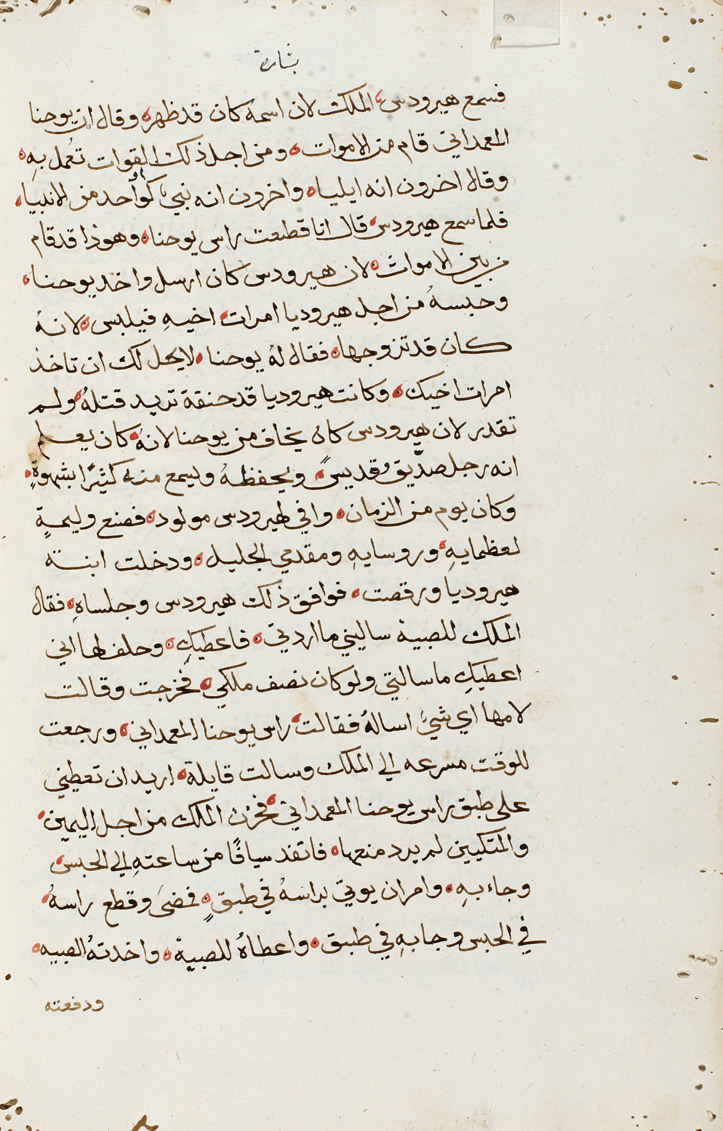 بشارة
فسمع هيرودس الملك لان اسمه كان قد ظهر وقال ان يوحنا
المعمداني قام من الاموات ومن اجل ذلك القوات تعمل بهِ
وقال اخرون انه ايليا واخرون انه نبي كواحد من الانبيا
فلما سمع هيرودس قال انا قطعت راس يوحنا وهوذا قد قام
من بين الاموات لان هيرودس كان ارسل واخد يوحنا
وحبسهُ من اجل هيروديا امرات اخيهِ فيلبس لانهُ
كان قد تزوجها فقال لهُ يوحنا لا يحل لك ان تاخذ
امرات اخيك وكانت هيروديا قد حنقة تريد قتلهُ ولم
تقدر لان هيرودس كان يخاف من يوحنا لانهُ كان يعلم
انه رجل صدّيق وقديس ويحفظهُ ويسمع منه كثيرًا بشهوةٍ
وكان يوم من الزمان وافي لهيرودس مولود فصنع وليمةٍ
لعظمايهِ وروسايهِ ومقدمي الجليل ودخلت ابنته
هيروديا ورقصت فوافق ذلك هيرودس وجلساهِ فقال
الملك للصبية ساليني ما اردتي فاعطيكِ وحلف لها اني
اعطيكِ ما سالتي ولو كان نصف ملكي فخرجت وقالت
لامها اي شيْ اسالهُ فقالت راس يوحنا المعمداني ورجعت
للوقت مسرعه الي الملك وسالت قايلة اريد ان تعطيني
على طبق راس يوحنا المعمداني فحزن الملك من اجل اليمين
والمتكيين لم يرد منعها فانفد سيافًا من ساعتهِ الي الحبس
وجاء بهِ وامر ان يوتي براسهُ في طبقٍ فمضى وقطع راسهُ
في الحبس وجا بهِ في طبق واعطاهُ للصبية واخدتهُ الصبيه
ودفعته